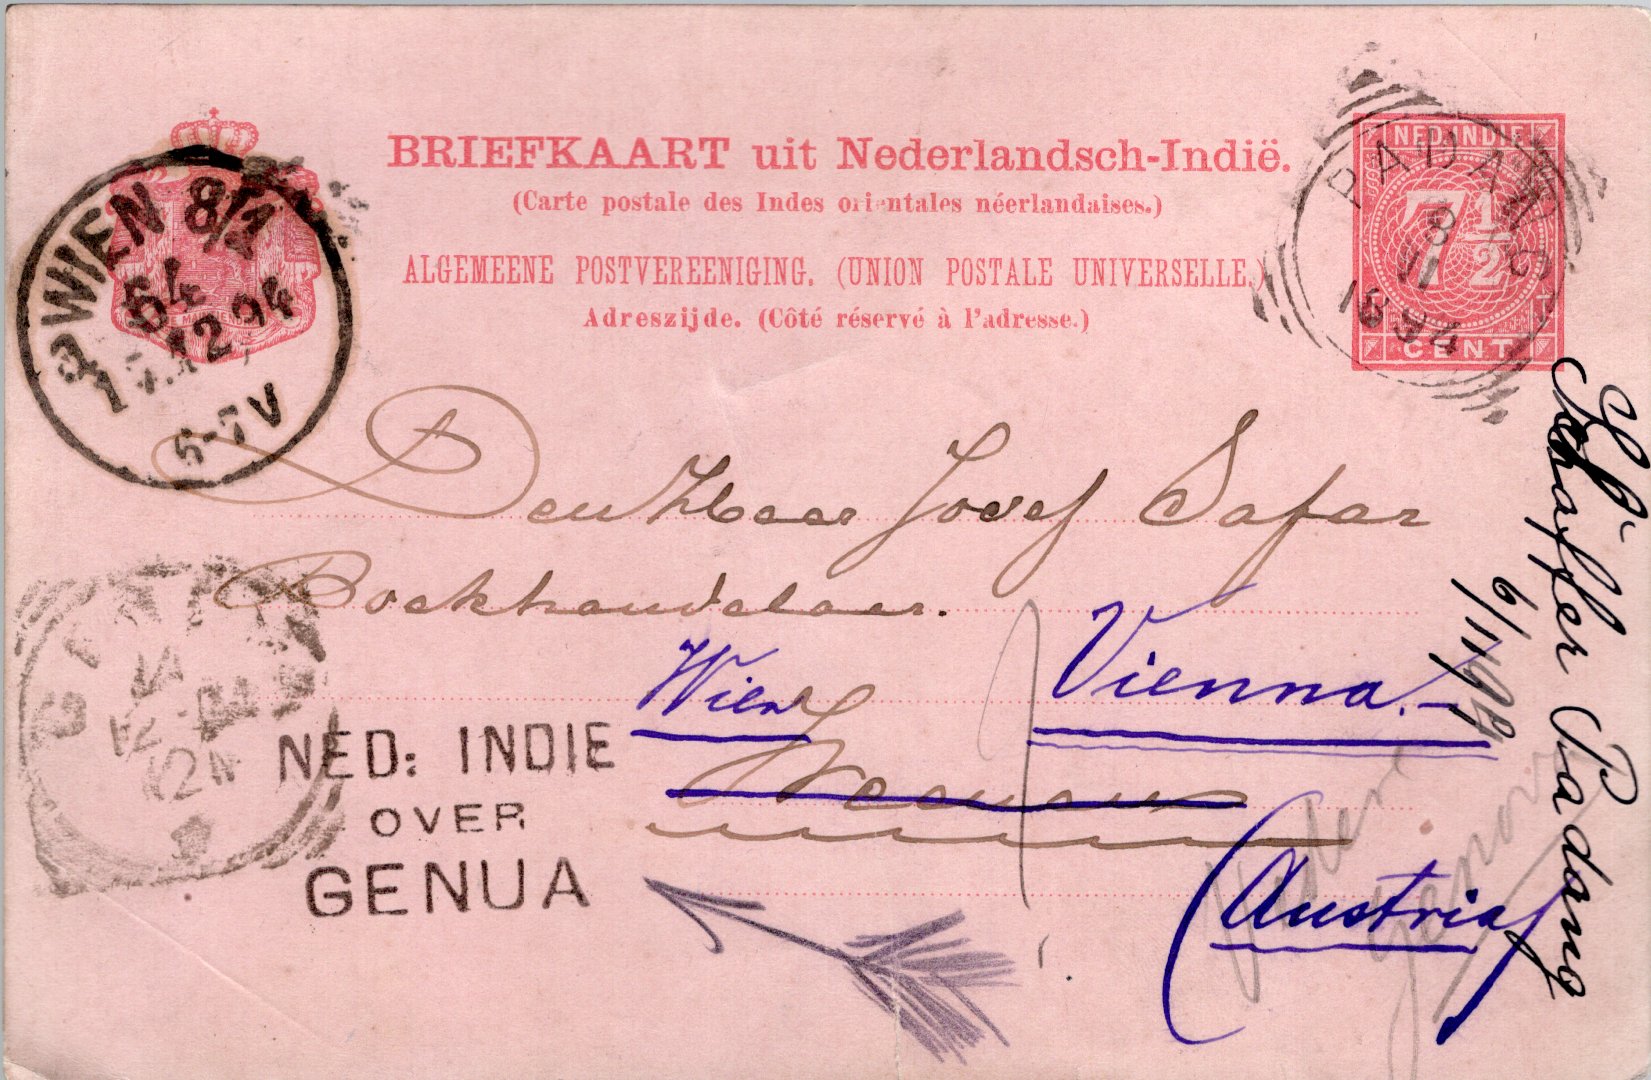 BRIEFKAART uit Nederlandsch-Indië.
(Carte postale des Indes orientales néerlandaises.)
ALGEMEENE POSTVEREENIGING. (UNION POSTALE UNIVERSELLE.)
Adreszijde. (Côté réservé à l'adresse.)
NED. INDIE
7 1/2
CENT
PADANG
8
11
1894
WIEN 8/1
54
12.94
5-7 V
Den Heer Josef Safar
Boekhandelaar.
Wien
Vienna.
Weenen
(Austria)
NED: INDIE
OVER
GENUA
Schäffer Padang
6/11 94